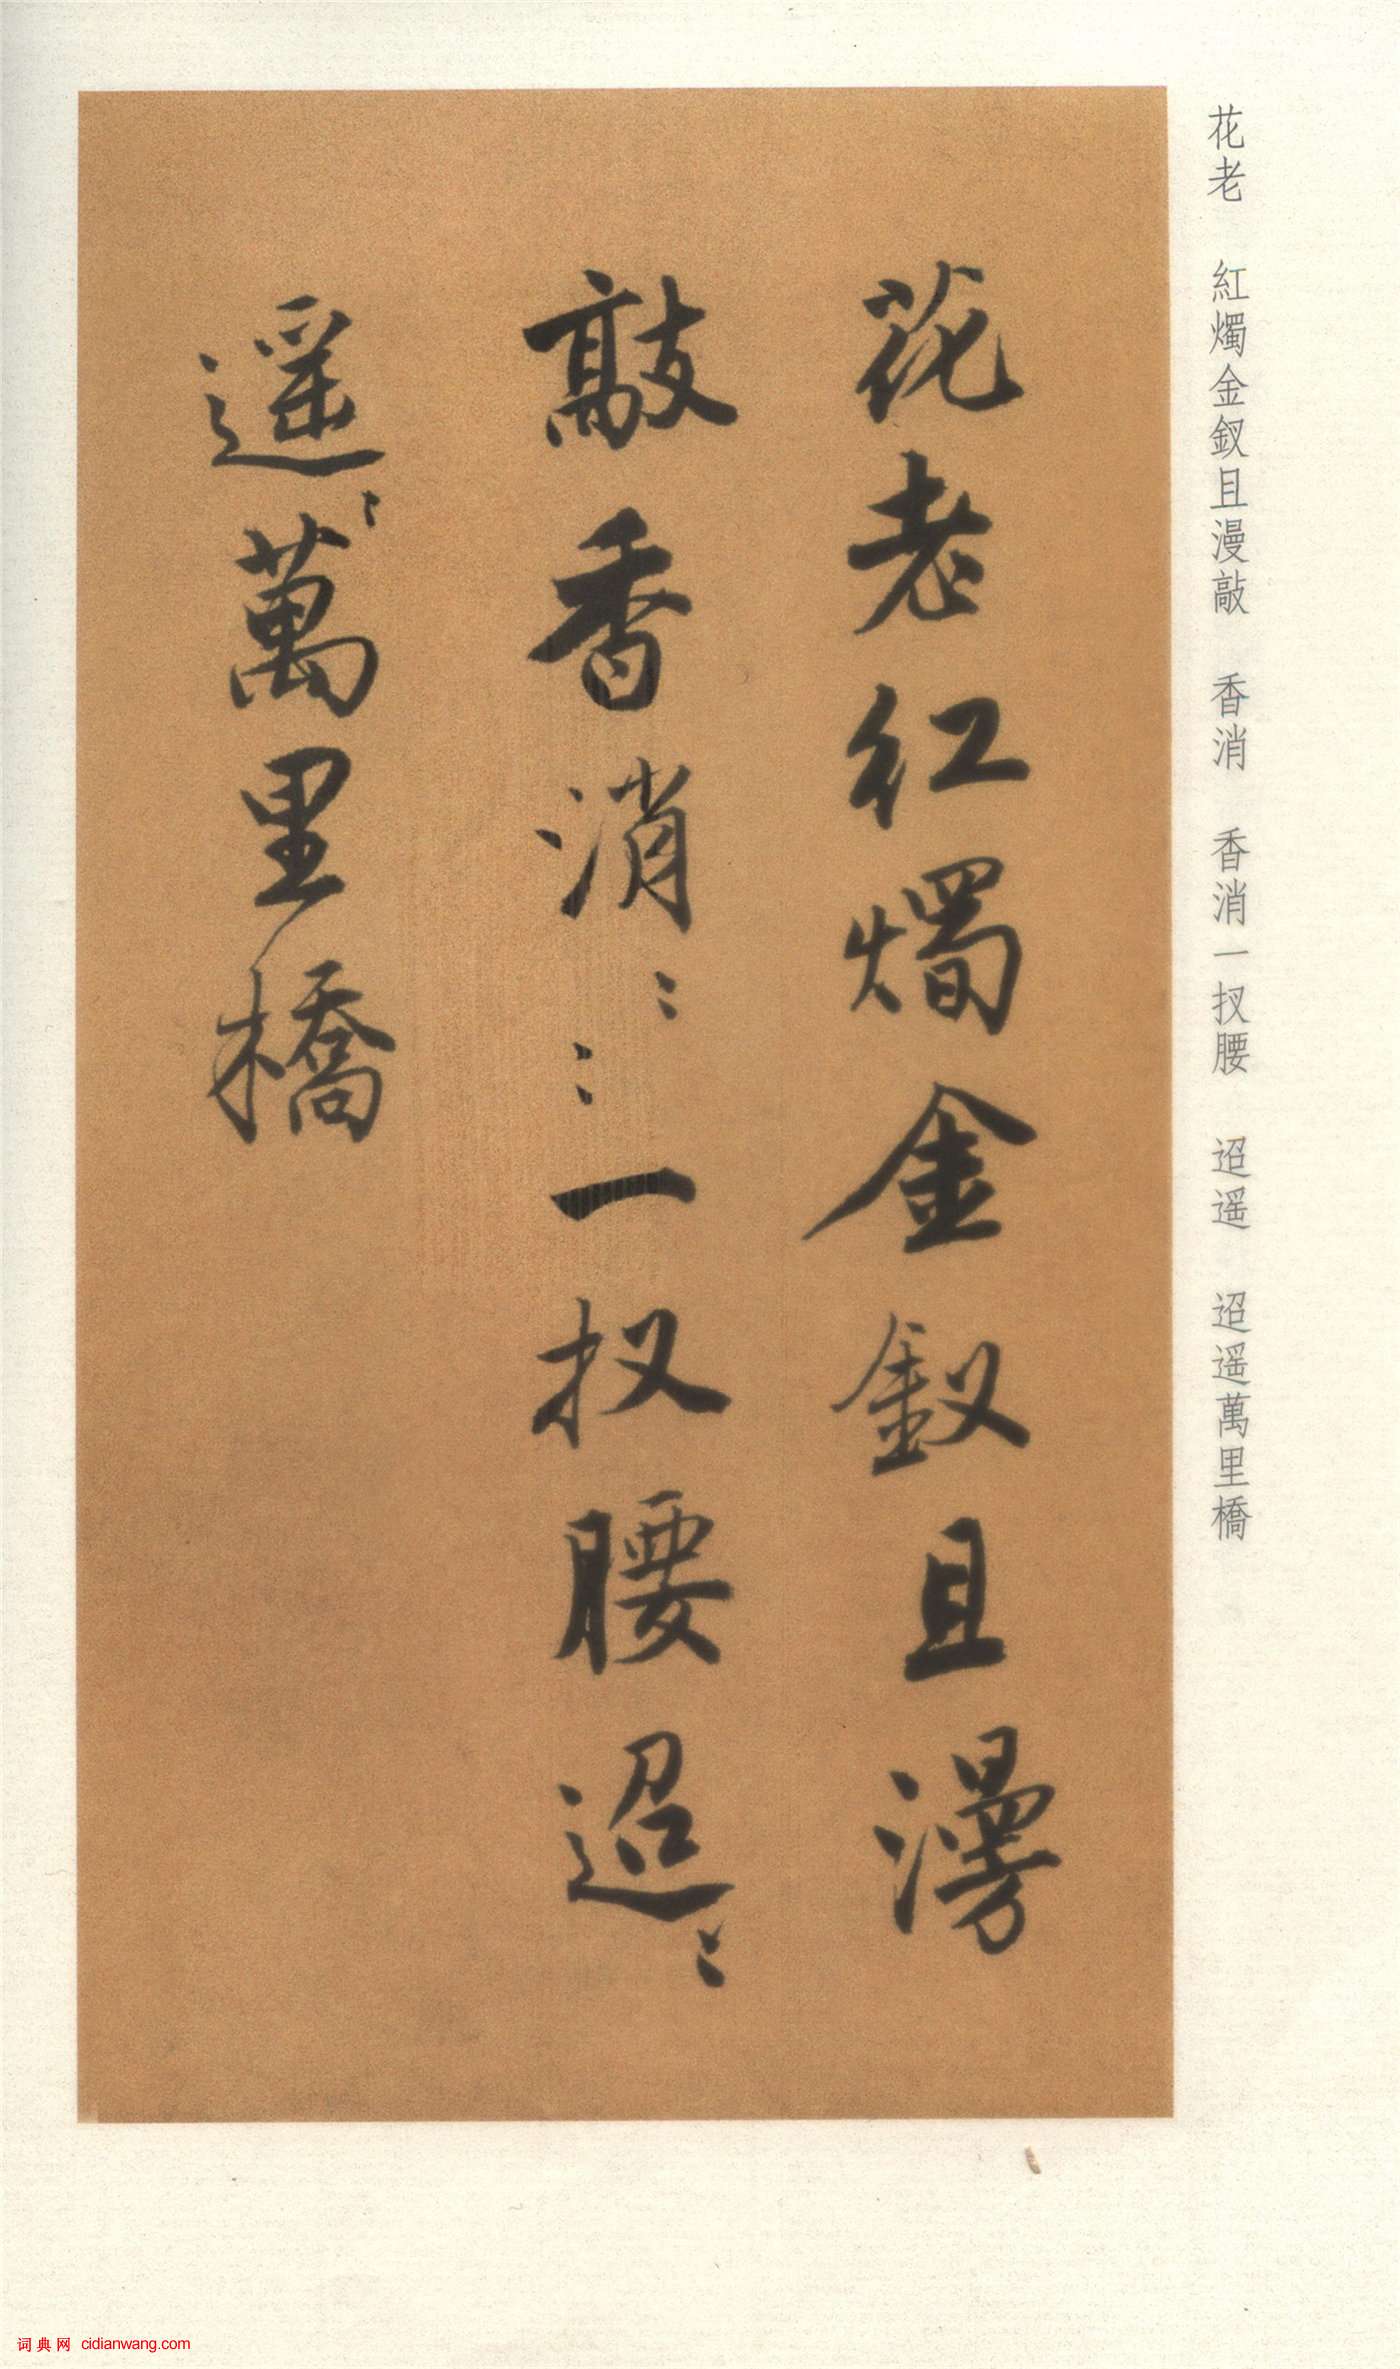 花老　紅燭金釵且漫敲　香消　香消一扠腰　迢遥　迢遥萬里橋
花老红燭金釵且漫
敲香消〻〻一扠腰迢〻
遥〻萬里橋
词典网 cidianwang.com